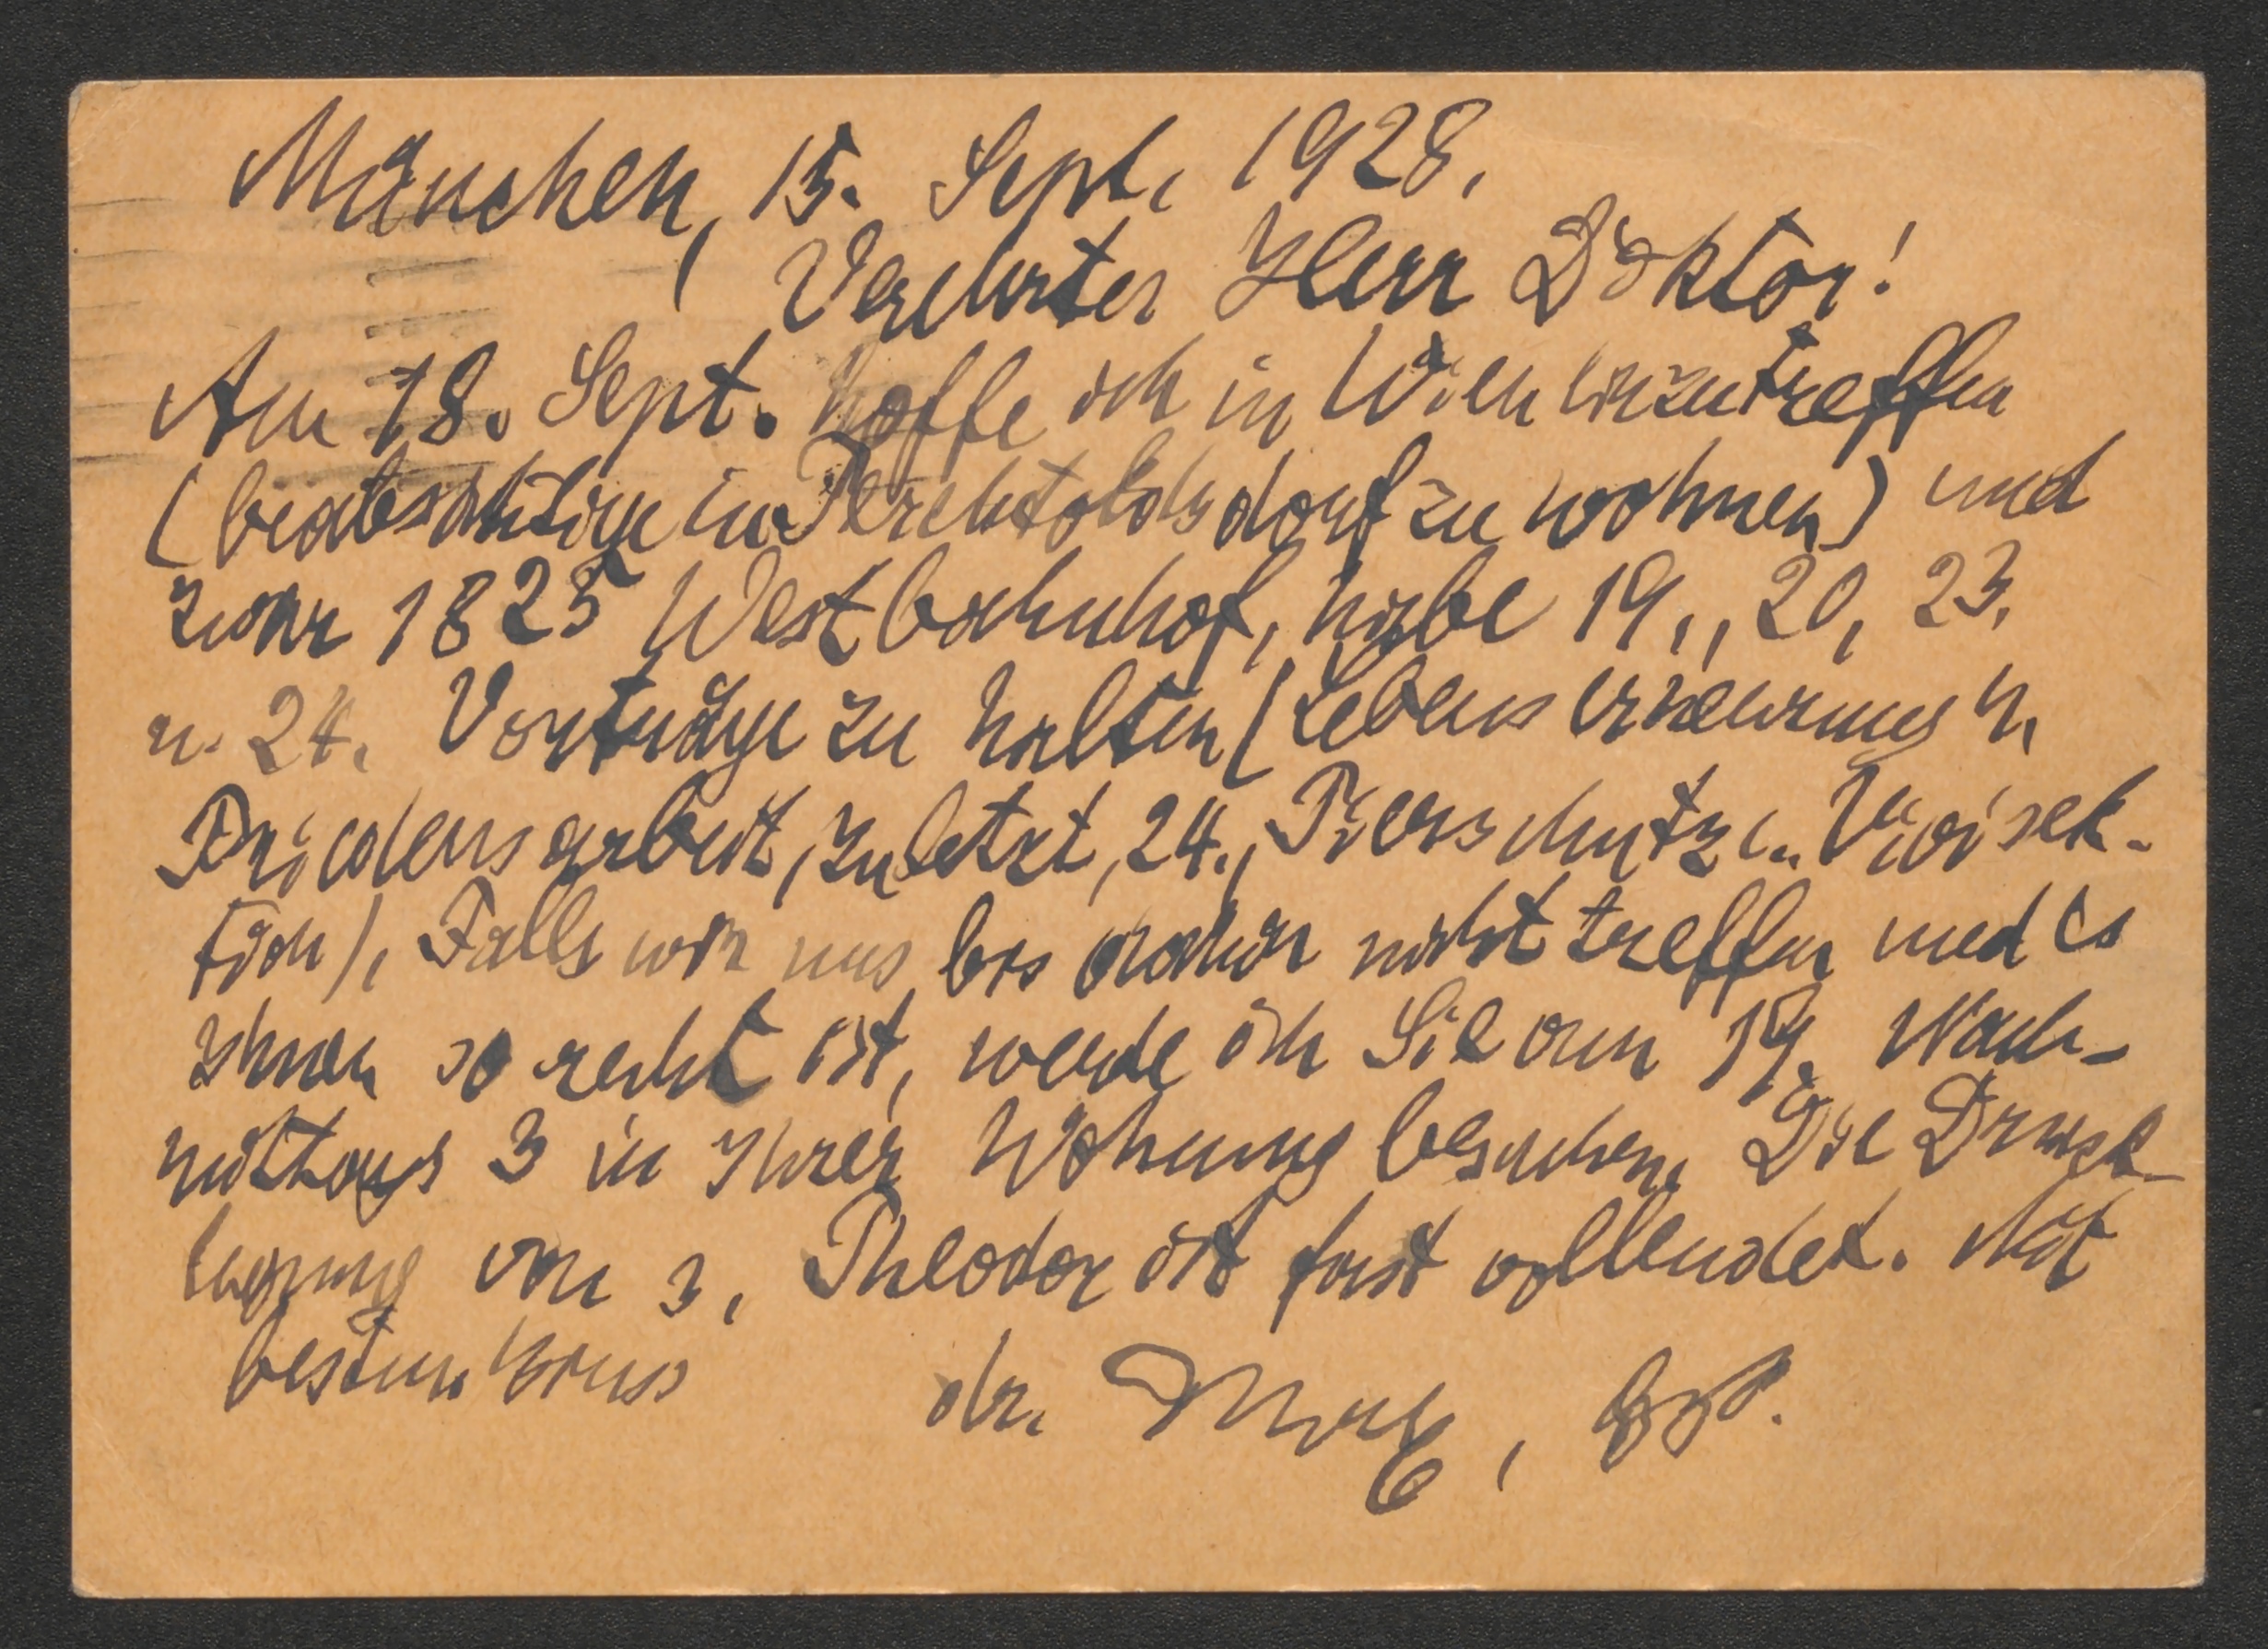 München, 15. Sept. 1928.
Verehrter Herr Doktor!
Am 18. Sept. hoffe ich in Wien einzutreffen
(beabsichtige in Perchtoldsdorf zu wohnen) und
zwar 1825 Westbahnhof, habe 19., 20, 23.
u. 24. Vorträge zu halten (Lebenserneuerung u.
Friedensarbeit, zuletzt, 24., Tierschutz u. Vivisek-
tion). Falls wir uns bis dahin nicht treffen und es
Ihnen so recht ist, werde ich Sie am 19. Nach-
mittags 3 in Ihrer Wohnung besuchen. Die Druck-
legung von 3. Theodor ist fast vollendet. Mit
bestem Gruss dr.